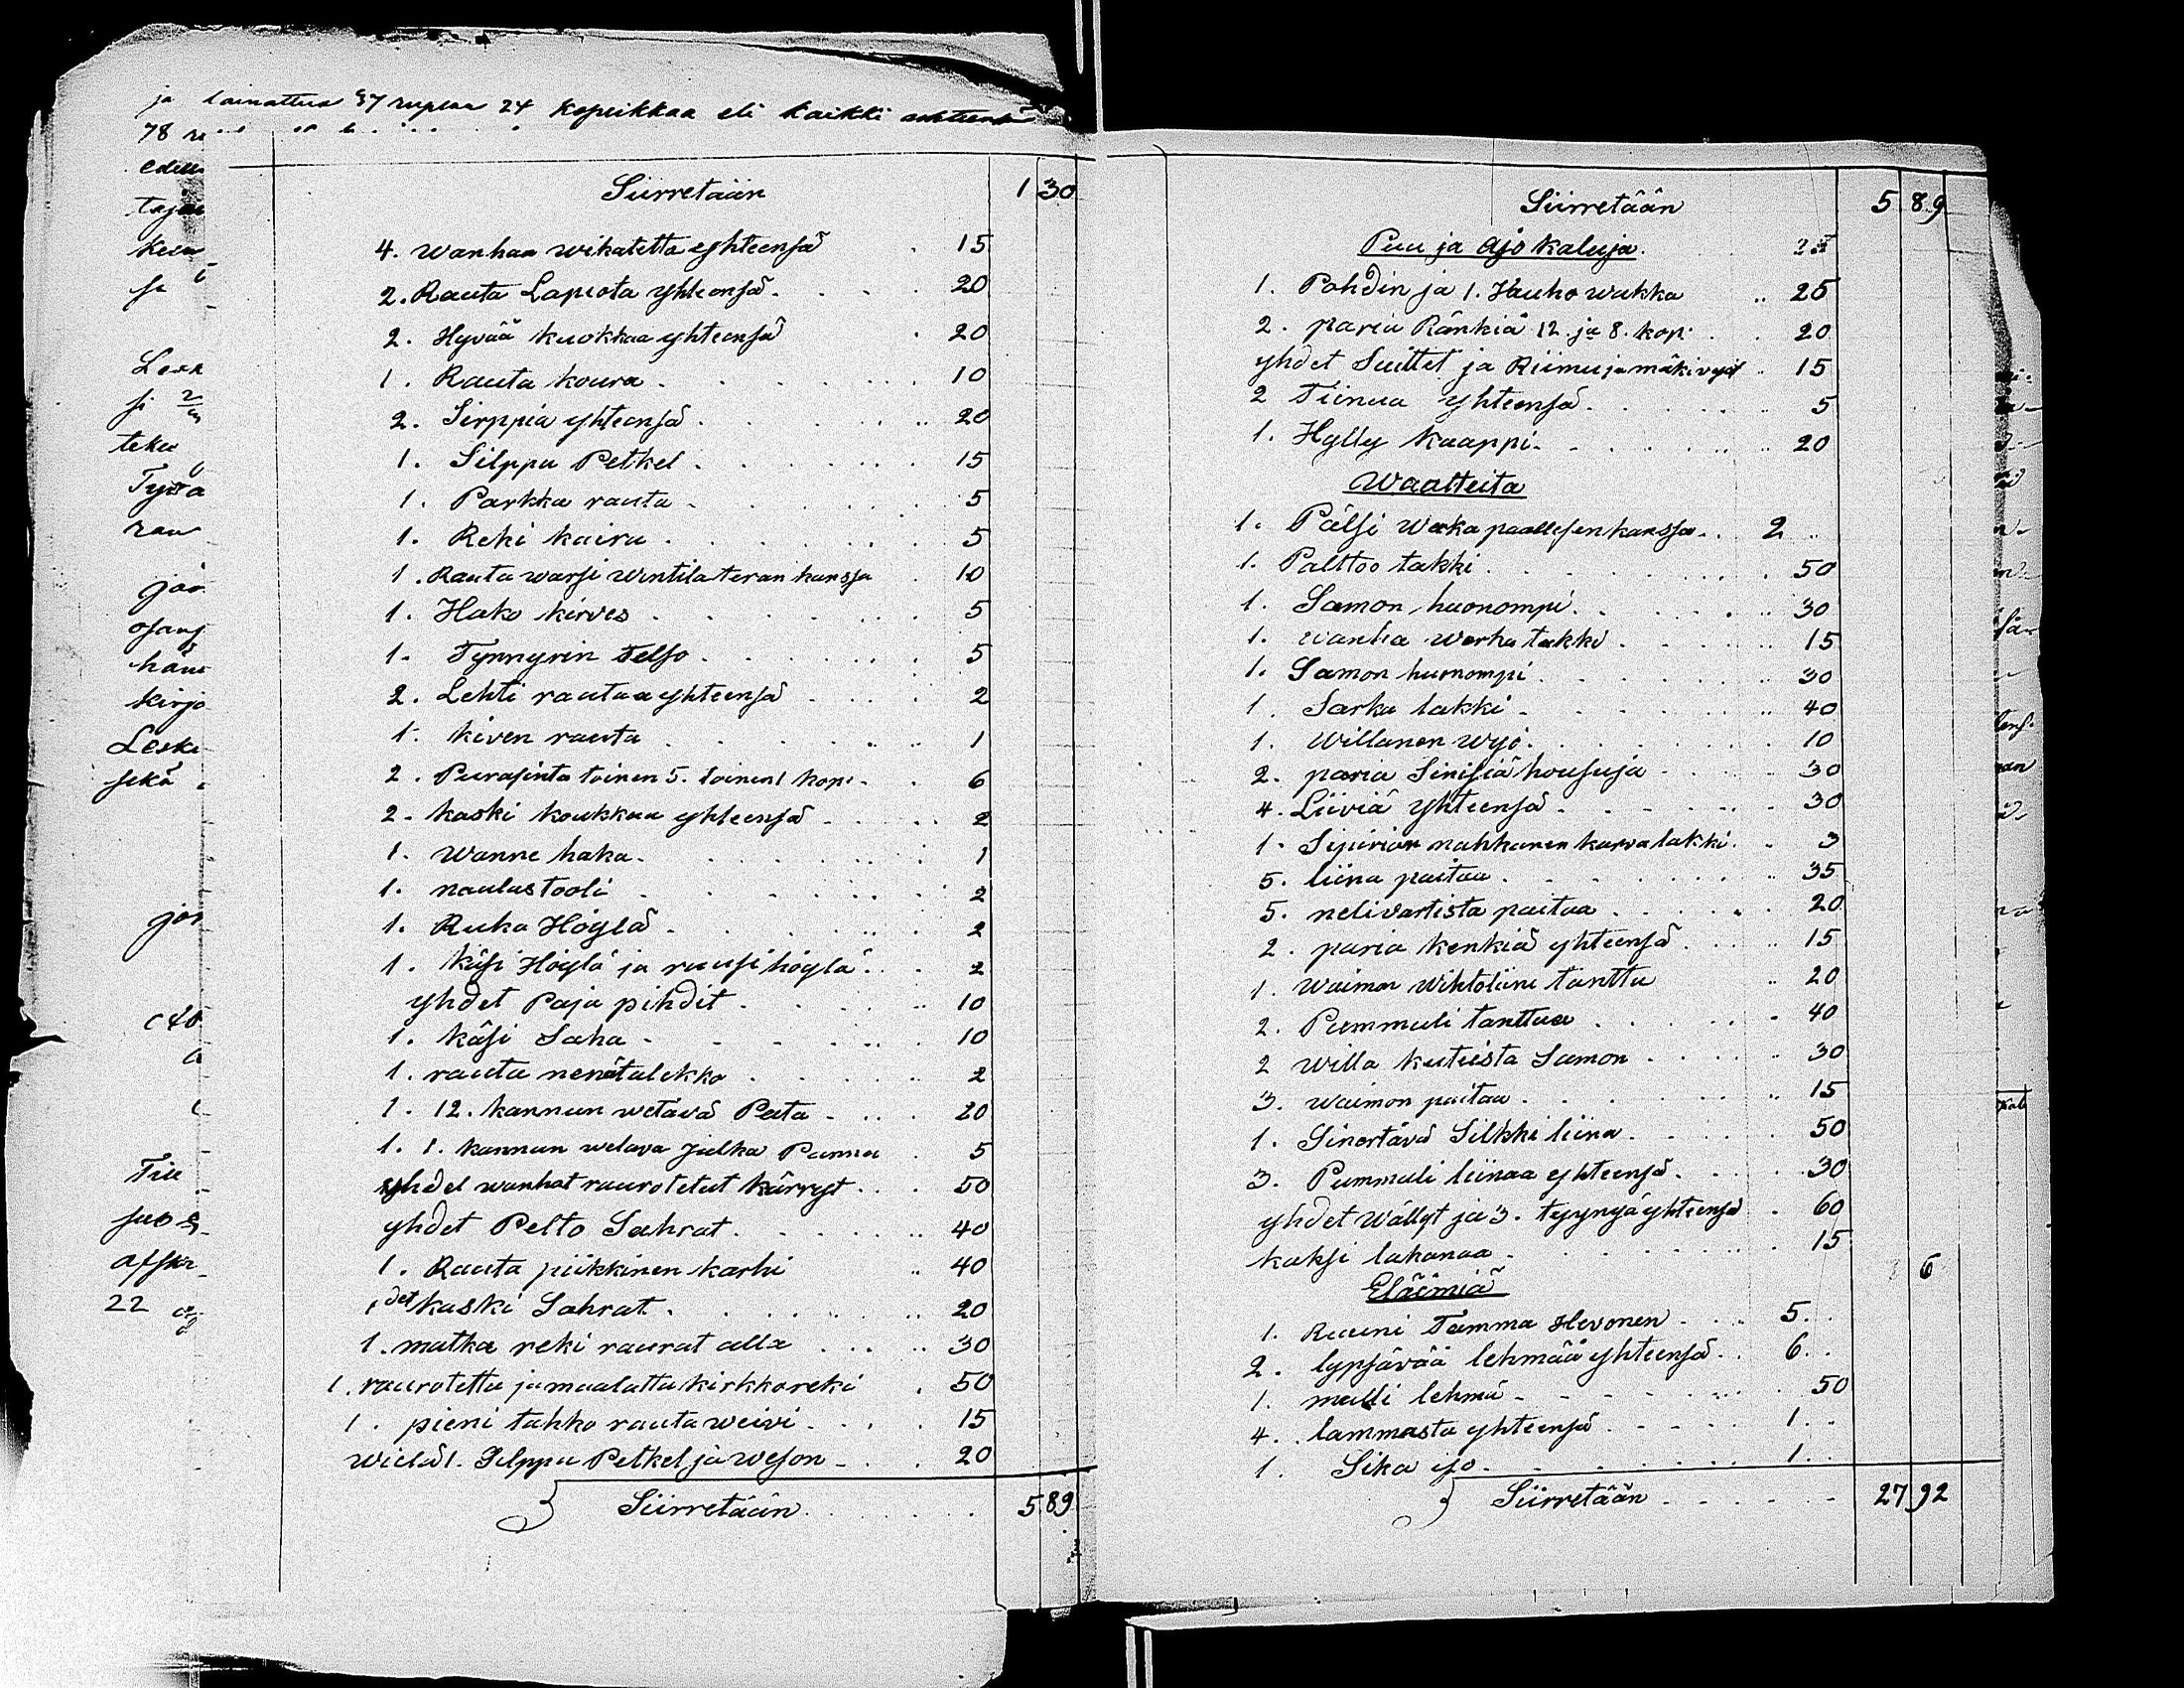 ja lainattua 37 ruplaa 24 kopeikkaa eli kaikki
78
Siirretään 1 30
4. wanhaa wikatetta yhteensä . 15
2. Rauta Lapiota yhteensä . . . 20
2. Hyvää kuokkaa yhteensä . 20
1. Rauta koura . . . . . . . 10
2. Sirppiä yhteensä . . . . . . 20
1. Silppu Petkel . . . . . . 15
1. Parkka rauta . . . . . . 5
1. Reki kaira . . . . . . . 5
1. Rauta warsi Wintila terän kanssa . 10
1. Hako kirves . . . . . . . 5
1. Tynnyrin Telso . . . . . . 5
2. Lehti rautaa yhteensä . . . 2
1. kiven rauta . . . . . . 1
2. Purasinta toinen 5. toinen 1 kop. . 6
2. kaski koukkua yhteensä . . . . 2
1. Wanne haka . . . . . . 1
1. naulastooli . . . . . . 2
1. Ruka Höylä . . . . . . 2
1. Käsi Höylä ja ruusi höylä . . . 2
yhdet Paja pihdit . . . . . 10
1. käsi Saha . . . . . . 10
1. rauta nenätalikko . . . . . 2
1. 12. kannun wetävä Pata . . . . 20
1. 1. kannun wetävä jalka Pannu . 5
yhdet wanhat raurotetut kärryt . . . 50
yhdet Pelto Sahrat . . . . . . 40
1. Rauta piikkinen karhi .. 40
1 det kaski Sahrat . . . . . . 20
1. matka reki raurat alla . . . . 30
1. raurotettu ja maalattu kirkkoreki . 50
1. pieni tahko rauta weivi . . . . 15
wielä 1. Silppu Petkel ja weson . . . 20
Siirretään . . . . . . . 5 89
Siirretään 5 89
Puu ja Ajo kaluja.
1. Pohdin ja 1. Jauho wakka .. 25
2. paria Ränkiä 12. ja 8. kop. . . 20
yhdet Suittet ja Riimu ja mäkivyöt .. 15
2 Tiinua yhteensä . . . . . . 5
1. Hylly kaappi . . . . . . . 20
Waatteita
1. Pälsi Werka paallisen kanssa . . 2 ..
1. Palttoo takki . . . . . . . . 50
1. Samon huonompi . . . . . . 30
1. wanha Werka takki . . . . . 15
1. Samon huonompi . . . . . . . 30
1. Sarka takki . . . . . . .. 40
1. Willanen Wyö . . . . . . . 10
2. paria Sinisiä housuja . . . . . 30
4. Liiviä yhteensä . . . . . . . 30
1. Sipirian nahkanen karvalakki . . 3
5. liina paitaa . . . . . . . .. 35
5. nelivartista paitaa . . . . . . 20
2. paria kenkiä yhteensä . . . .. 15
1. Waimon Wihtoliini tanttu .. 20
2. Pummuli tanttua . . . . . . 40
2 Willa kutuista Samon . . . . .. 30
3. Waimon paitaa . . . . . . .. 15
1. Sinertävä Silkki liina . . . . . 50
3. Pummuli liinaa yhteensä . . . . 30
yhdet Wällyt ja 3. tyynyä yhteensä . 60
kaksi lakanaa . . . . . . . . 15
6
Eläimiä
1. Rauni Tamma Hevonen . . . 5 . .
2. lypsävää lehmää yhteensä . . 6 . .
1. mulli lehmä . . . . . . . . 50
4. lammasta yhteensä . . . . . 1 . .
1. Sika iso . . . . . . . . 1 . .
Siirretään . . . . . . 27 92